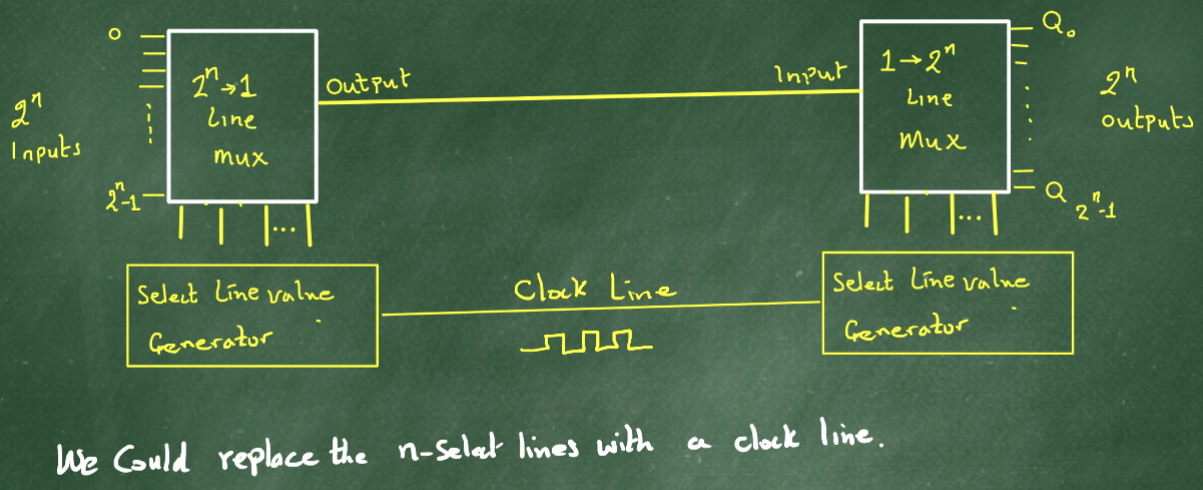 0
2ⁿ
Inputs
2ⁿ-1
2ⁿ→1
Line
mux
Output
Input
1→2ⁿ
Line
Mux
Q₀
2ⁿ
outputs
Q 2ⁿ-1
...
...
Select Line value
Generator
Clock Line
Select Line value
Generator
We Could replace the n-Select lines with a clock line.